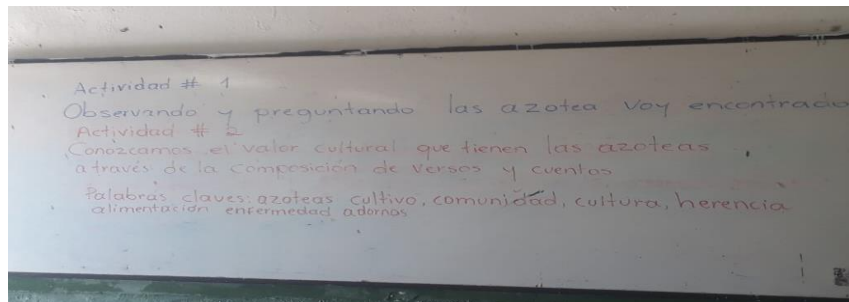 Actividad # 1
Observando y preguntando las azotea voy encontrado
Actividad # 2
Conozcamos el valor cultural que tienen las azoteas
a través de la composición de versos y cuentos
Palabras claves: azoteas cultivo, comunidad, cultura, herencia
alimentación enfermedad adornos